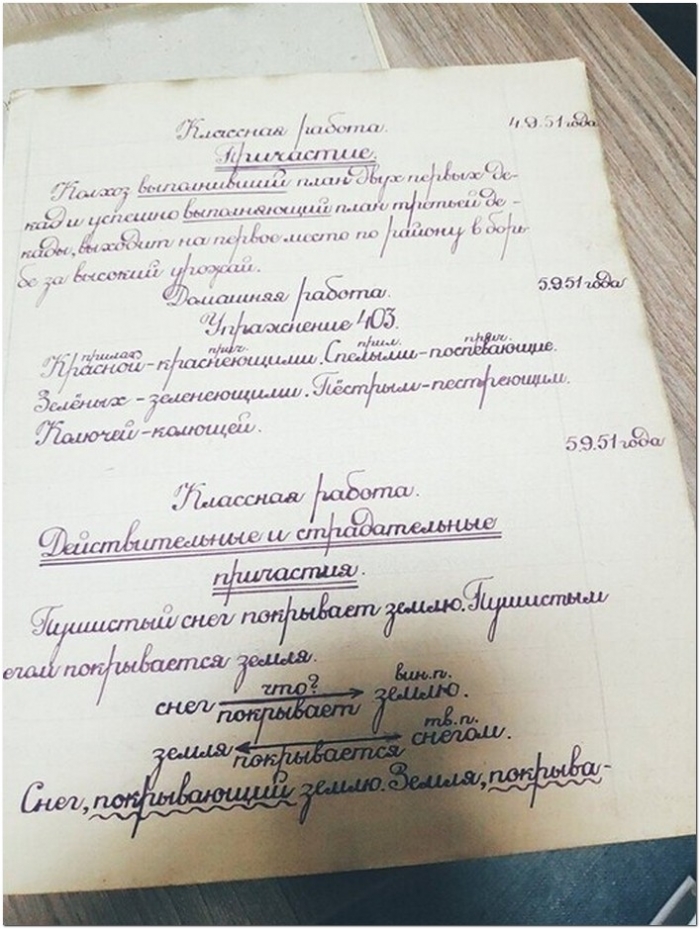 Классная работа. 4.9.51 года
Причастие.
Колхоз выполнивший план двух первых де-
кад и успешно выполняющий план третьей де-
кады, выходит на первое место по району в борь-
бе за высокий урожай.
5.9.51 года
Домашняя работа.
Упражнение 403.
прилаг. прич. прил. прич.
Красной-краснеющими. Спелыми-поспевающие.
Зелёных-зеленеющими. Пёстрым-пестреющим.
Колючей-колющей.
5.9.51 года
Классная работа.
Действительные и страдательные
причастия.
Пушистый снег покрывает землю. Пушистым
егом покрывается земля.
что? вин.п.
снег покрывает землю.
тв.п.
земля покрывается снегом.
Снег, покрывающий землю. Земля, покрыва-